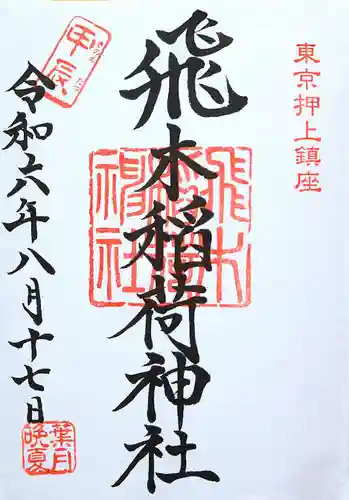 東京押上鎮座
飛木稲荷神社
甲辰
きのえ たつ
令和六年八月十七日
葉月
晩夏